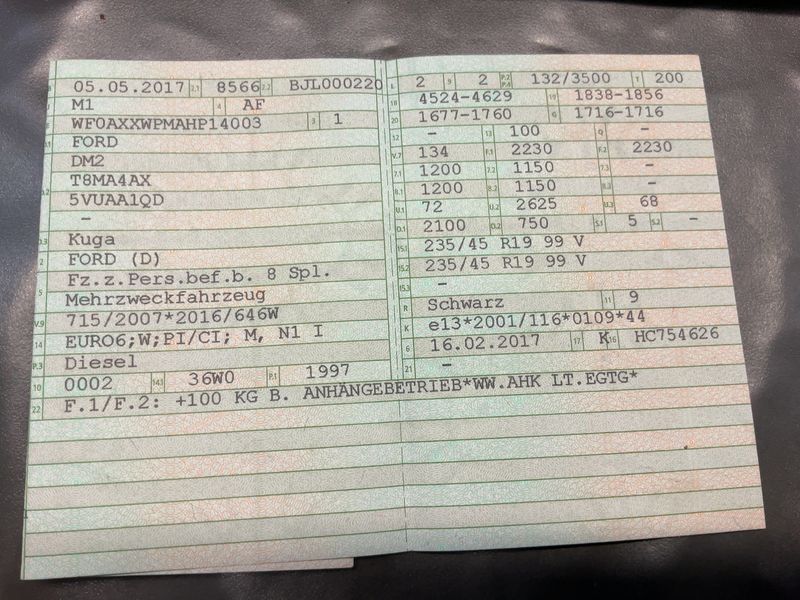 05.05.2017 2.1 8566 2.2 BJL000220
M1 4 AF
WF0AXXWPMAHP14003 3 1
FORD
DM2
T8MA4AX
5VUAA1QD
-
D.3 Kuga
2 FORD (D)
5 Fz.z.Pers.bef.b. 8 Spl.
Mehrzweckfahrzeug
V.9 715/2007*2016/646W
14 EURO6;W;PI/CI; M, N1 I
P.3 Diesel
10 0002 14.1 36W0 P.1 1997
22 F.1/F.2: +100 KG B. ANHÄNGEBETRIEB*WW.AHK LT.EGTG*
L 2 9 2 P.2 P.4 132/3500 T 200
18 4524-4629 19 1838-1856
20 1677-1760 G 1716-1716
12 - 13 100 Q -
V.7 134 F.1 2230 F.2 2230
7.1 1200 7.2 1150 7.3 -
8.1 1200 8.2 1150 8.3 -
U.1 72 U.2 2625 U.3 68
O.1 2100 O.2 750 S.1 5 S.2 -
15.1 235/45 R19 99 V
15.2 235/45 R19 99 V
15.3 -
R Schwarz 11 9
K e13*2001/116*0109*44
6 16.02.2017 17 K 16 HC754626
21 -